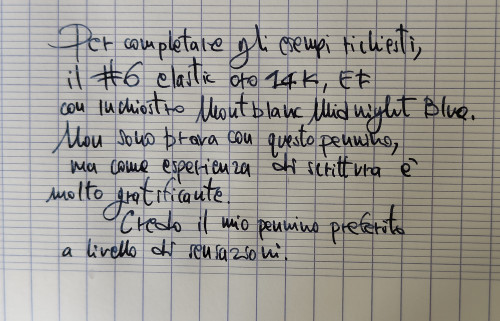 Per completare gli esempi richiesti,
il #6 elastic oro 14K, EF
con inchiostro Montblanc Midnight Blue.
Non sono brava con questo pennino,
ma come esperienza di scrittura è
molto gratificante.
Credo il mio pennino preferito
a livello di sensazioni.